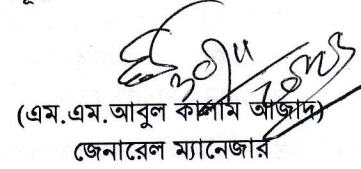 (এম.এম.আবুল কালাম আজাদ)
জেনারেল ম্যানেজার